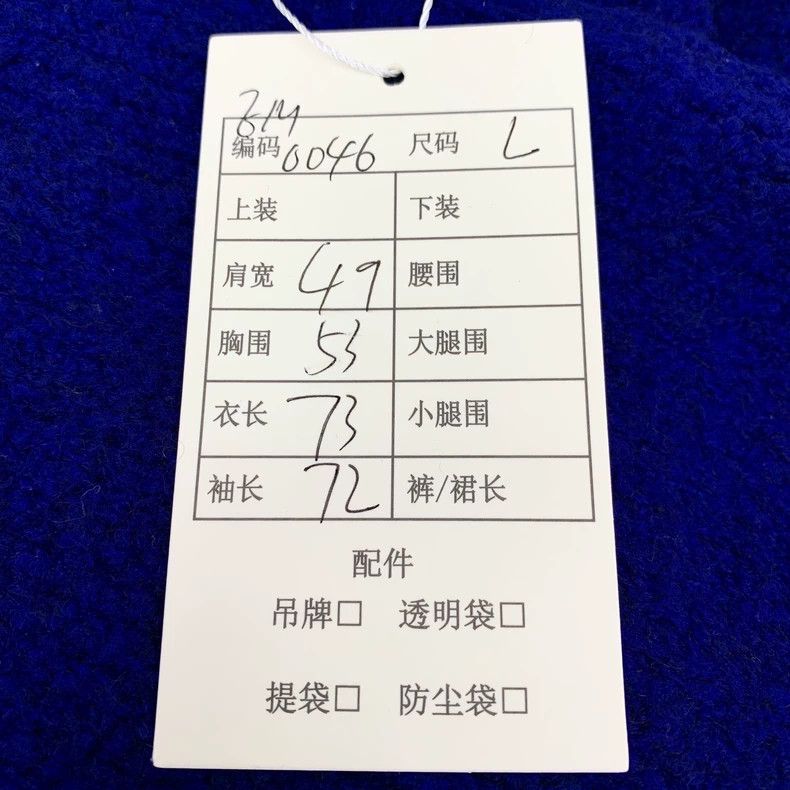 编码 0046 尺码 L
上装 下装
肩宽 49 腰围
胸围 53 大腿围
衣长 73 小腿围
袖长 72 裤/裙长
配件
吊牌□ 透明袋□
提袋□ 防尘袋□